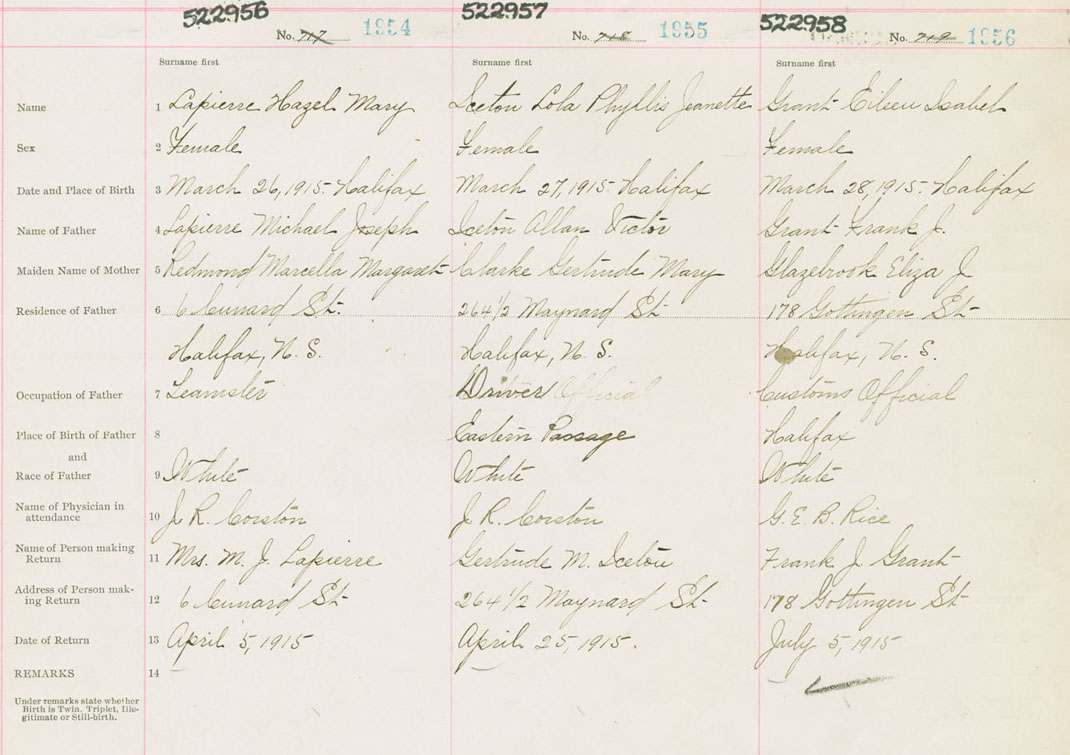 522956 522957 522958
No. 717 1954 No. 718 1955 No. 719 1956
Surname first Surname first Surname first
Name 1 Lapierre Hazel Mary Iceton Lola Phyllis Jeanette Grant Eileen Isabel
Sex 2 Female Female Female
Date and Place of Birth 3 March 26, 1915. Halifax March 27, 1915. Halifax March 28, 1915. Halifax
Name of Father 4 Lapierre Michael Joseph Iceton Allan Victor Grant Frank J.
Maiden Name of Mother 5 Redmond Marcella Margaret Clarke Gertrude Mary Glazebrook Eliza J
Residence of Father 6 6 Cunard St. 264 1/2 Maynard St 178 Gottingen St
Halifax, N. S. Halifax, N. S. Halifax, N. S.
Occupation of Father 7 Teamster Driver Official Customs Official
Place of Birth of Father 8 Eastern Passage Halifax
and
Race of Father 9 White White White
Name of Physician in
attendance 10 J. R. Corston J. R. Corston G. E. B. Rice
Name of Person making
Return 11 Mrs. M. J. Lapierre Gertrude M. Iceton Frank J. Grant
Address of Person mak-
ing Return 12 6 Cunard St 264 1/2 Maynard St 178 Gottingen St
Date of Return 13 April 5, 1915 April 25, 1915. July 5, 1915
REMARKS 14
Under remarks state whether
Birth is Twin. Triplet, Ille-
gitimate or Still-birth.